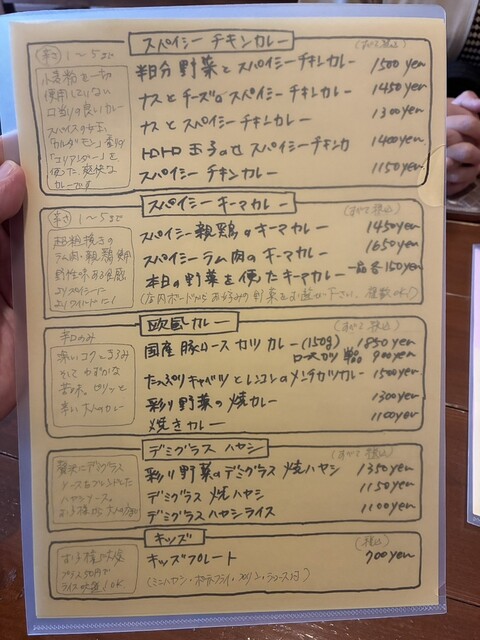 スパイシー チキンカレー
(すべて税込)
辛さ 1〜5まで
小麦粉を一切
使用していない
口当りの良いカレー
スパイスの女王
「カルダモン」香り
「コリアンダー」を
使った爽快な
カレーです
半日分 野菜と スパイシーチキンカレー 1500yen
ナスとチーズのスパイシーチキンカレー 1450yen
ナスとスパイシーチキンカレー 1300yen
トロトロ玉子のせ スパイシーチキンカ 1400yen
スパイシー チキンカレー 1150yen
スパイシー キーマカレー
(すべて税込)
辛さ 1〜5まで
超粗挽きの
ラム肉・親鶏
野性味ある
よりスパイシーに
よりワイルドに!
スパイシー親鶏のキーマカレー 1450yen
スパイシーラム肉のキーマカレー 1650yen
本日の野菜を使たキーマカレー 一品各150yen
(店内ボードからお好みの野菜をお選び下さい。複数OK!)
欧風カレー
(すべて税込)
辛口のみ
深いコクとうまみ
そして わずかな
苦味。ピリッと
辛い大人のカレー
国産豚ロースカツカレー(150g) 1850yen
ロースカツ単品 900yen
たっぷりキャベツとレンコンのメンチカツカレー 1500yen
彩り野菜の焼カレー 1300yen
焼きカレー 1100yen
デミグラス ハヤシ
(すべて税込)
贅沢にデミグラス
ソースをブレンドした
ハヤシソース。
お子様から大人まで
彩り野菜のデミグラス焼ハヤシ 1350yen
デミグラス 焼ハヤシ 1150yen
デミグラス ハヤシライス 1100yen
キッズ
(税込)
お子様
プラス50円で
ライス大盛りOK
キッズプレート 700yen
(ミニハヤシ・ポテトフライ・プリン・ジュース付)